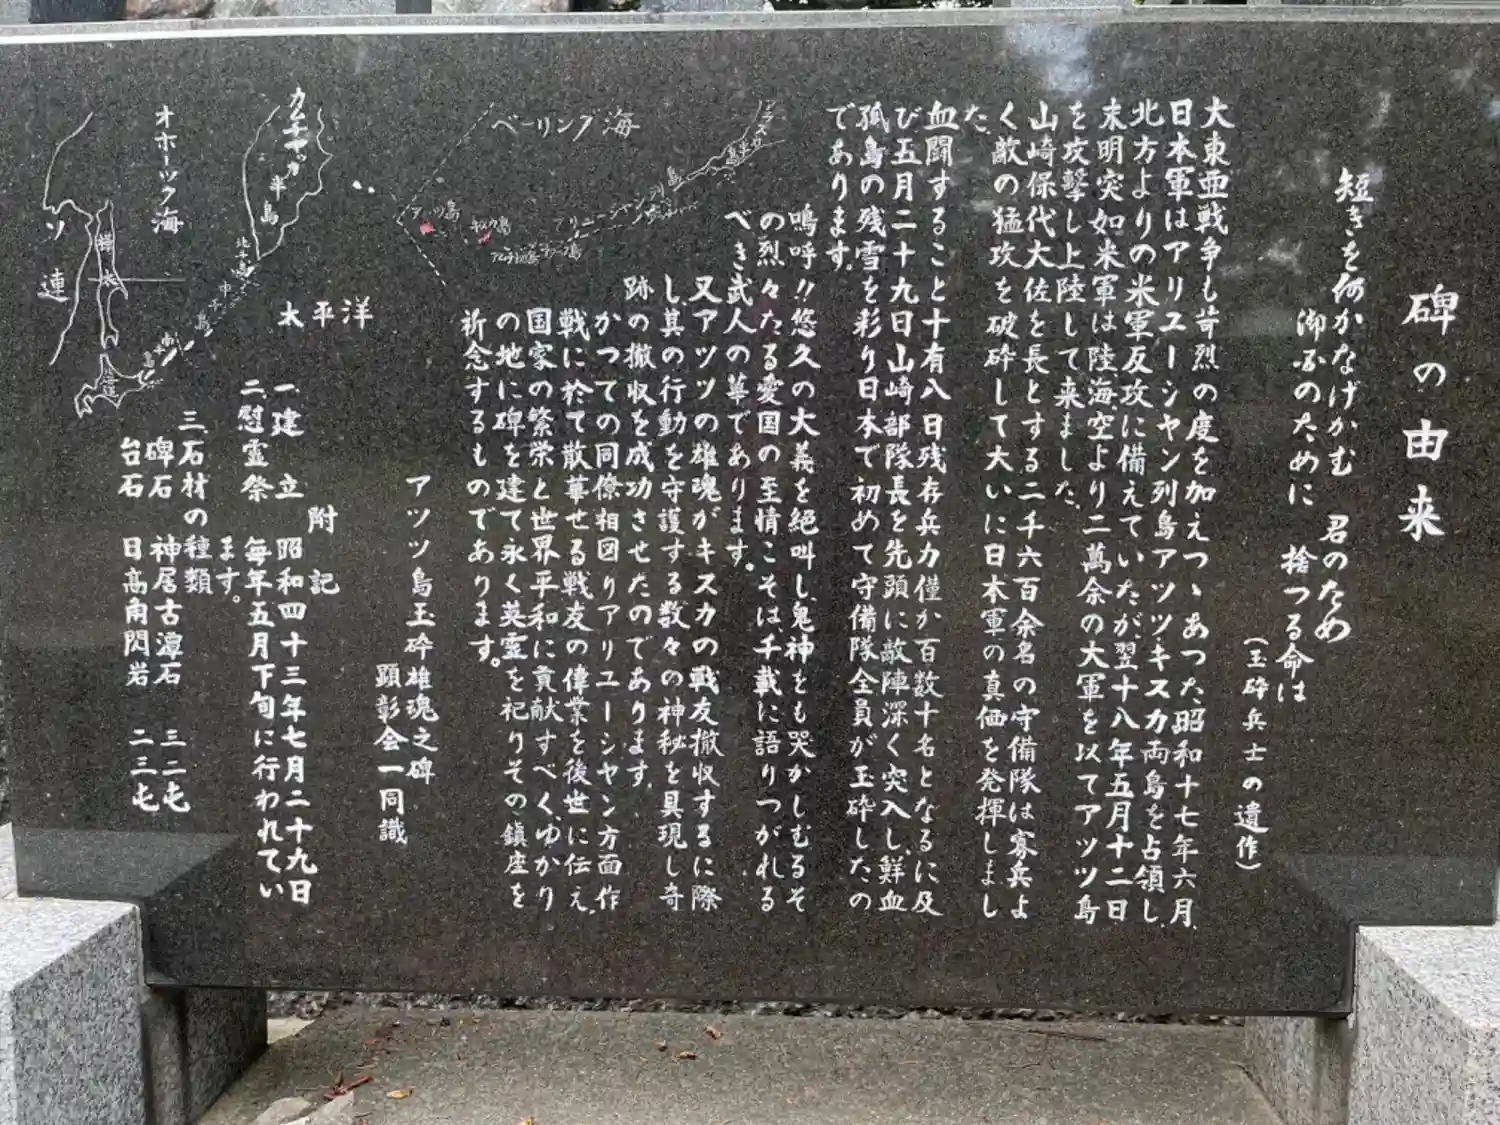 碑の由来
短きを何かなげかむ 君のため
御国のために 捨つる命は
(玉砕兵士の遺作)
大東亜戦争も苛烈の度を加えつゝあつた昭和十七年六月、
日本軍はアリユーシヤン列島アツツキスカ両島を占領し、
北方よりの米軍反攻に備えていたが、翌十八年五月十二日
未明突如米軍は陸、海、空より二萬余の大軍を以てアツツ島
を攻撃し上陸して来ました。
山崎保代大佐を長とする二千六百余名の守備隊は寡兵よ
く敵の猛攻を破砕して大いに日本軍の真価を発揮しまし
た。
血闘すること十有八日残存兵力僅か百数十名となるに及
び五月二十九日山崎部隊長を先頭に敵陣深く突入し、鮮血
孤島の残雪を彩り日本で初めて守備隊全員が玉砕したの
であります。
嗚呼!!悠久の大義を絶叫し、鬼神をも哭かしむるそ
の烈々たる愛国の至情こそは千載に語りつがれる
べき武人の華であります。
又アツツの雄魂がキスカの戦友撤収するに際
し其の行動を守護する数々の神秘を具現し奇
跡の撤収を成功させたのであります。
かつての同僚相図りアリユーシヤン方面作
戦に於て散華せる戦友の偉業を後世に伝え、
国家の繁栄と世界平和に貢献すべく、ゆかり
の地に碑を建て永く英霊を祀りその鎮座を
祈念するものであります。
アツツ島玉砕雄魂之碑
顕彰会一同識
附記
一建立 昭和四十三年七月二十九日
二慰霊祭 毎年五月下旬に行われてい
ます。
三石材の種類
碑石 神居古潭石 三二屯
台石 日高角閃岩 二三屯
ベーリング海
アラスカ
半島
アリューシャン列島
アッツ島
キスカ島
カムチャッカ
半島
オホーツク海
ソ連
樺太
北千島
中千島
南千島
太平洋